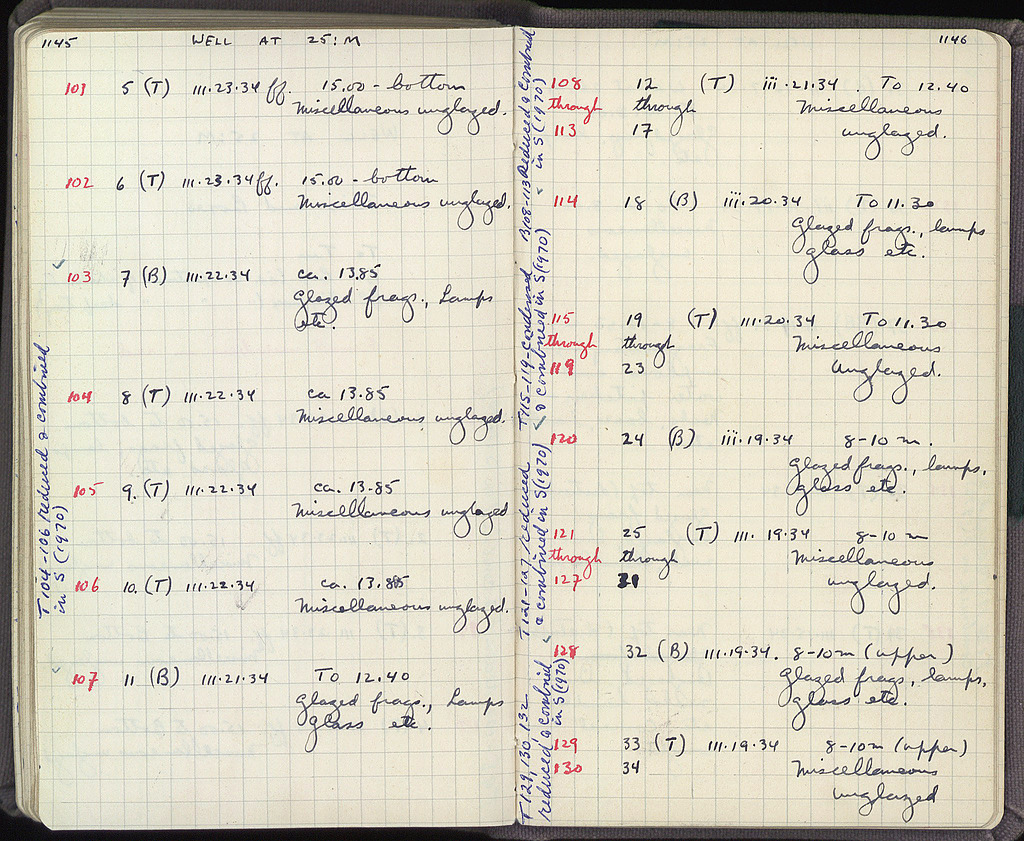 1145 WELL AT 25:M
101 5 (T) III.23.34 ff. 15.00 - bottom
Miscellaneous unglazed.
102 6 (T) III.23.34 ff. 15.00 - bottom
Miscellaneous unglazed.
103 7 (B) III.22.34 ca. 13.85
Glazed frags., Lamps
etc.
104 8 (T) III.22.34 ca 13.85
Miscellaneous unglazed.
105 9. (T) III.22.34 ca. 13.85
Miscellaneous unglazed
106 10. (T) III.22.34 ca. 13.85
Miscellaneous unglazed.
107 11 (B) III.21.34 To 12.40
Glazed frags., Lamps
glass etc.
T 104-106 reduced & combined
in S (1970)
1146
108 12 (T) iii.21.34. To 12.40
through through Miscellaneous
113 17 unglazed.
114 18 (B) iii.20.34 To 11.30
Glazed frags., lamps
glass etc.
115 19 (T) III.20.34 To 11.30
through through Miscellaneous
119 23 Unglazed.
120 24 (B) iii.19.34 8-10 m.
Glazed frags., lamps,
glass etc.
121 25 (T) III.19.34 8-10 m
through through Miscellaneous
127 31 unglazed.
128 32 (B) III.19.34. 8-10m (upper)
Glazed frags, lamps,
glass etc.
129 33 (T) III.19.34 8-10m (upper)
130 34 Miscellaneous
unglazed
B108-113 Reduced & combined
" in S (1970)
T115-119-condensed
& combined in S (1970)
T121-127 reduced
& combined in S (1970)
T129, 130, 132
reduced & combined
in S (1970)